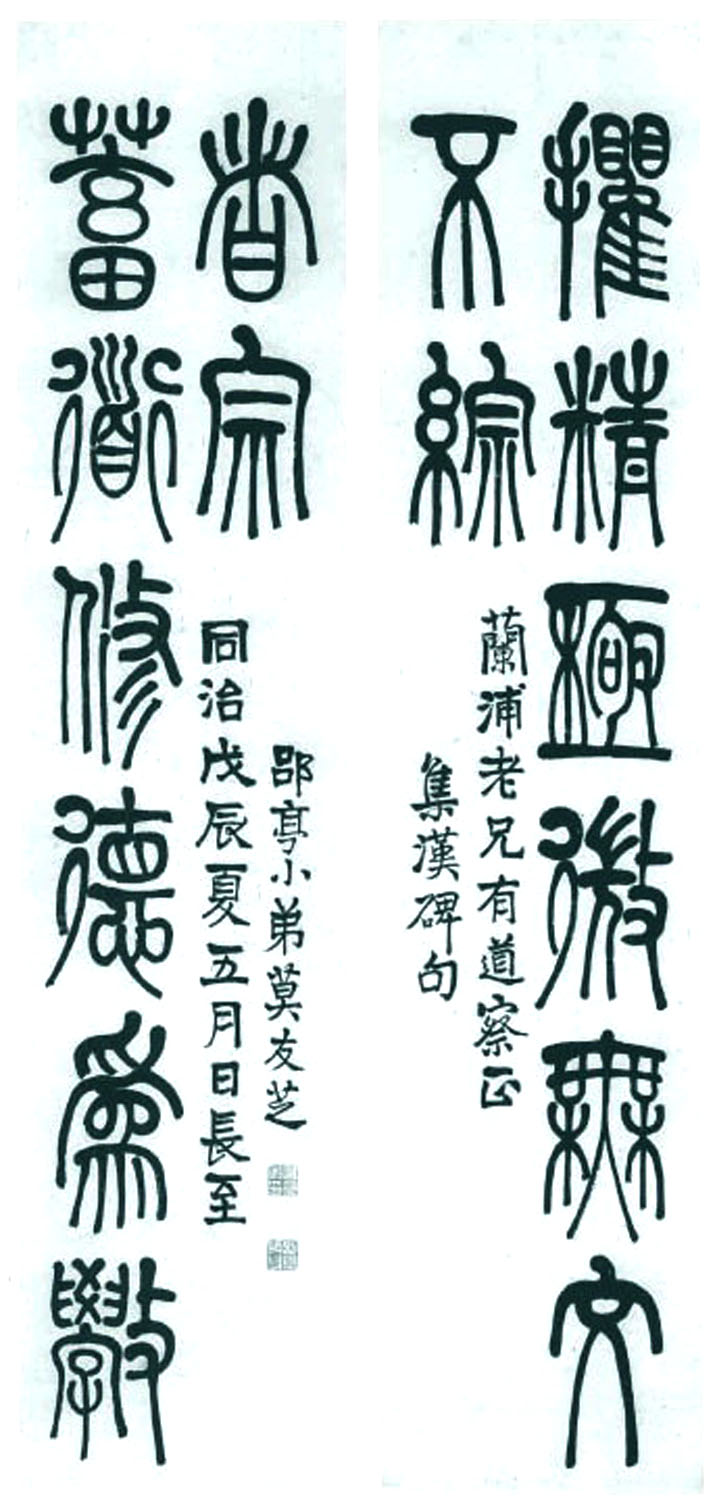 攫精極微無文
不綜
蘭浦老兄有道察正
集漢碑句
蓄道修德為斆
者宗
同治戊辰夏五月日長至
郘亭小弟莫友芝